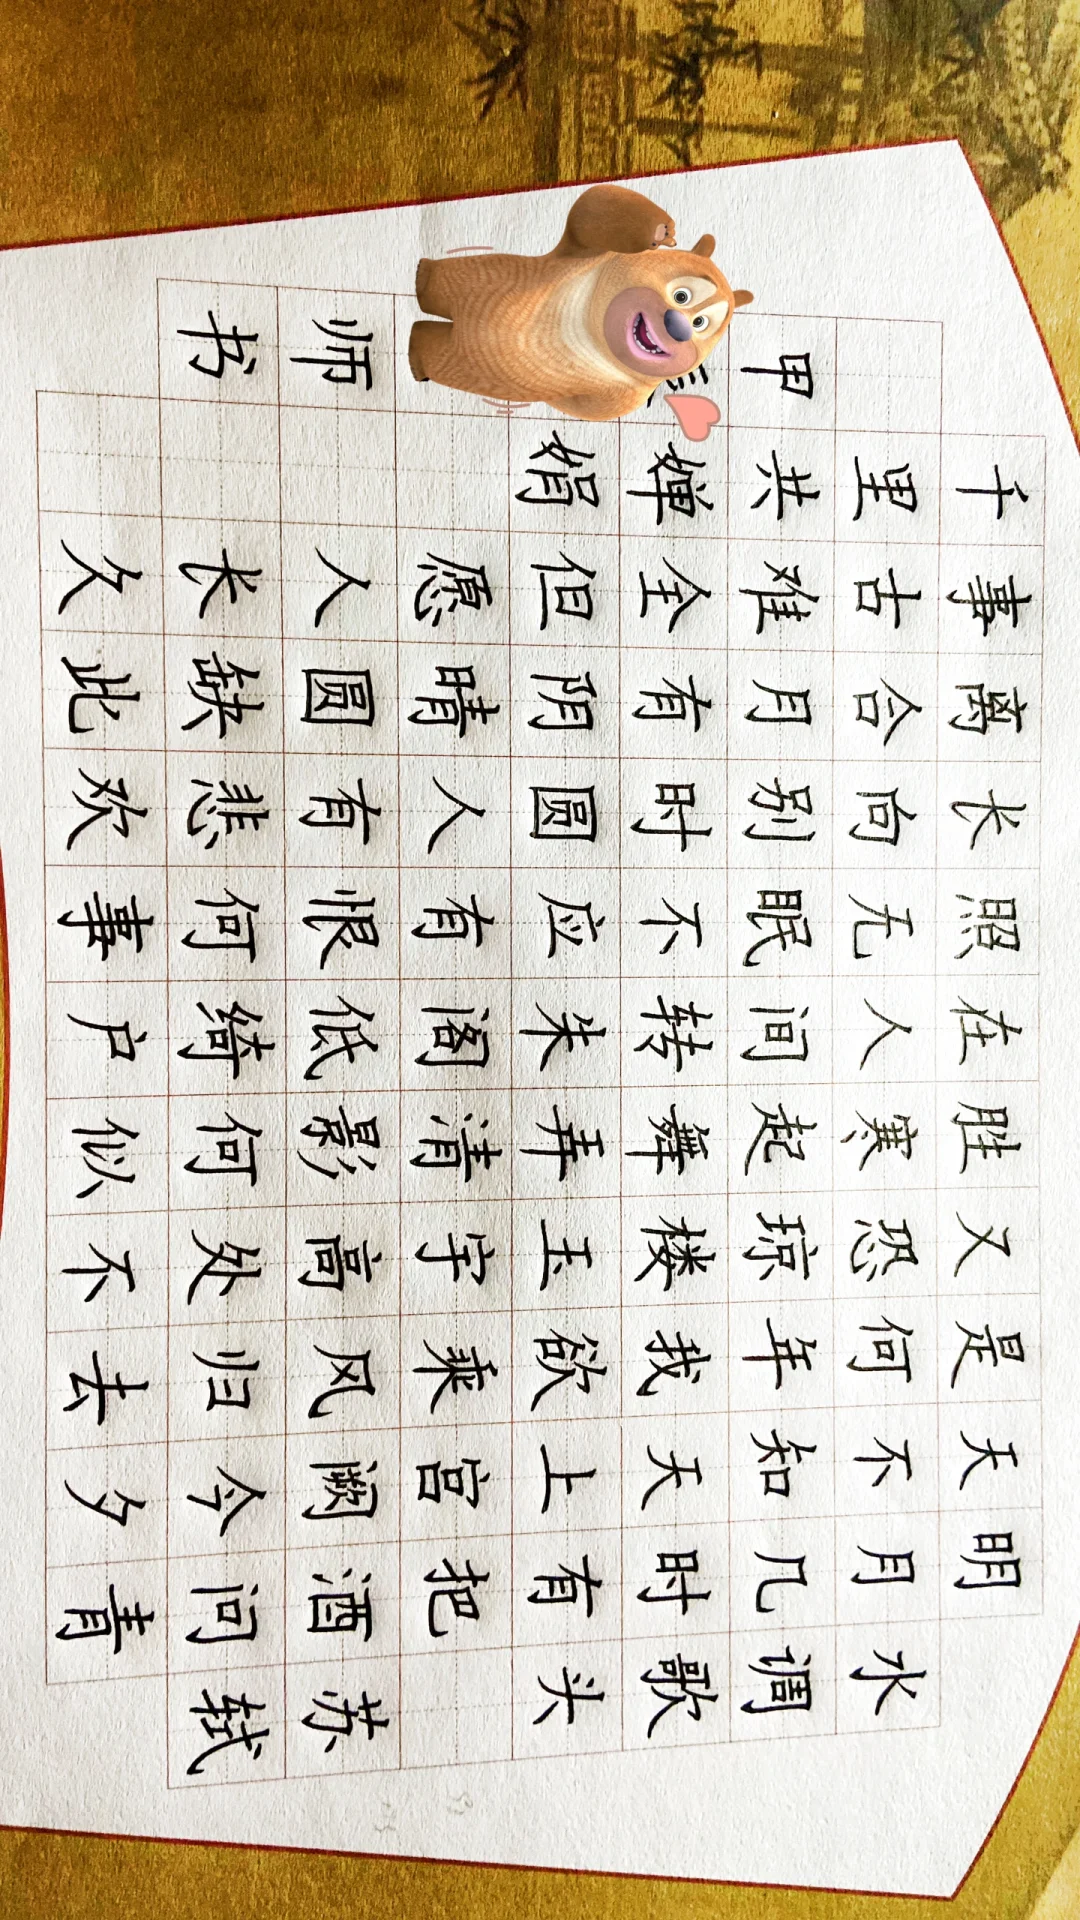 水调歌头 苏轼
明月几时有把酒问青
天不知天上宫阙今夕
是何年我欲乘风归去
又恐琼楼玉宇高处不
胜寒起舞弄清影何似
在人间转朱阁低绮户
照无眠不应有恨何事
长向别时圆人有悲欢
离合月有阴晴圆缺此
事古难全但愿人长久
千里共婵娟
甲 师书